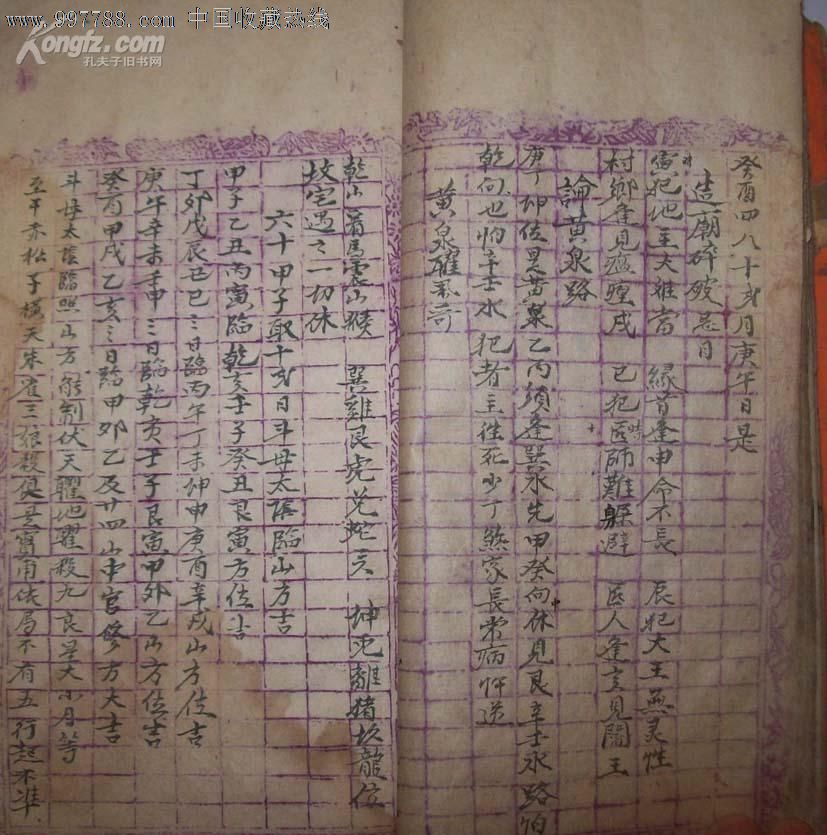 www.997788.com 中国收藏热线
Kongfz.com
孔夫子旧书网
癸酉四八十弍月庚午日是
造廟碎破忌日
寅犯地主大难當 緣首逢申命不長 辰犯大王無灵性
村鄉逢見瘟瘟戌 巳犯時医師難躲避 匠人逢亥見閻王
論黄泉路
庚丁坤位是黄泉 乙丙須逢巽水先 甲癸向中休見艮 辛壬水路怕
乾向也怕辛壬水 犯者主徃死少丁煞家長常病忤送
黄泉曜煞
乾山莫馬震山猴 巽雞艮虎兌蛇头 坤兎離猪坎龍位
坟宅遇之一切休
六十甲子取十弍日斗母太陰臨山方吉
甲子乙丑丙寅臨乾亥壬子癸丑艮寅方位吉
丁夘戊辰己巳三日臨丙午丁未坤申庚酉辛戌山方位吉
庚午辛未壬申三日臨乾亥壬子艮寅甲夘乙山方位吉
癸酉甲戌乙亥三日臨甲夘乙及廿四山中宮修方大吉
斗母太陰臨照山方能制伏天曜地曜殺九良星大小月等
至干赤松子横天朱雀三娘殺俱是寳甫依局不有五行起不準